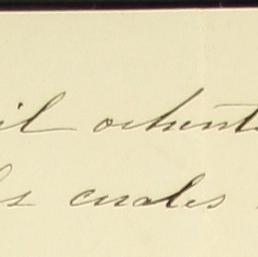 il ochent
s cuales